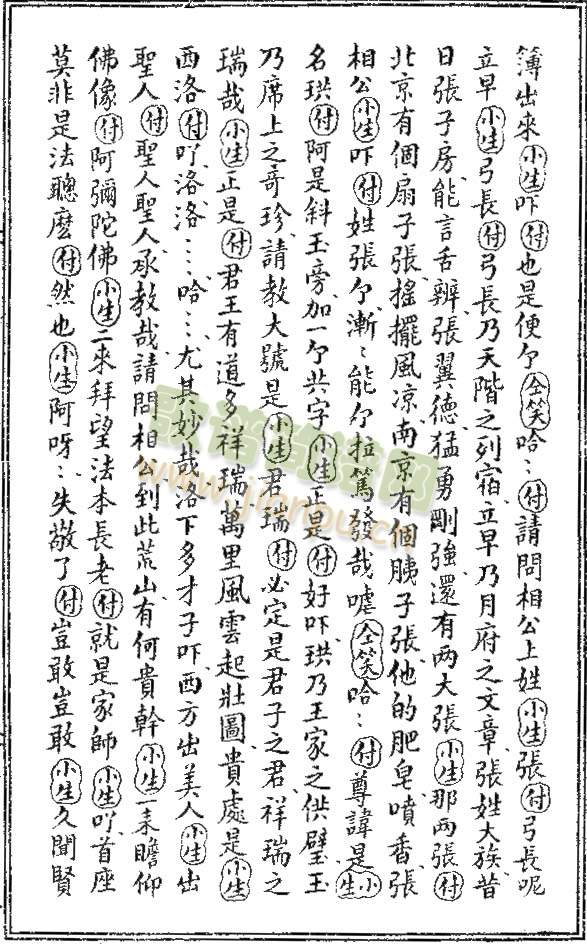 簿出來小生吓付也是便个仝笑哈⺀付請問相公上姓小生張付弓長呢
立早小生弓長付弓長乃天階之列宿立早乃月府之文章張姓大族昔
日張子房能言舌辨張翼德猛勇剛強還有两大張小生那两張付
北京有個扇子張搖擺風凉南京有個胰子張他的肥皂噴香張
相公小生吓付姓張个漸⺀能个拉篤發哉嘘仝笑哈⺀付尊諱是小生
名珙付阿是斜玉旁加一个共字小生正是付好吓珙乃王家之供璧玉
乃席上之奇珍請教大號是小生君瑞付必定是君子之君祥瑞之
瑞哉小生正是付君王有道多祥瑞萬里風雲起壯圖貴處是小生
西洛付吖洛洛⺀⺀哈⺀⺀尤其妙哉洛下多才子吓西方出美人小生出
聖人付聖人聖人承教哉請問相公到此荒山有何貴幹小生一来瞻仰
佛像付阿彌陀佛小生二來拜望法本長老付就是家師小生吖首座
莫非是法聰麽付然也小生阿呀⺀失敬了付豈敢豈敢小生久聞賢
歌谱简谱网
www.jianpu.cn